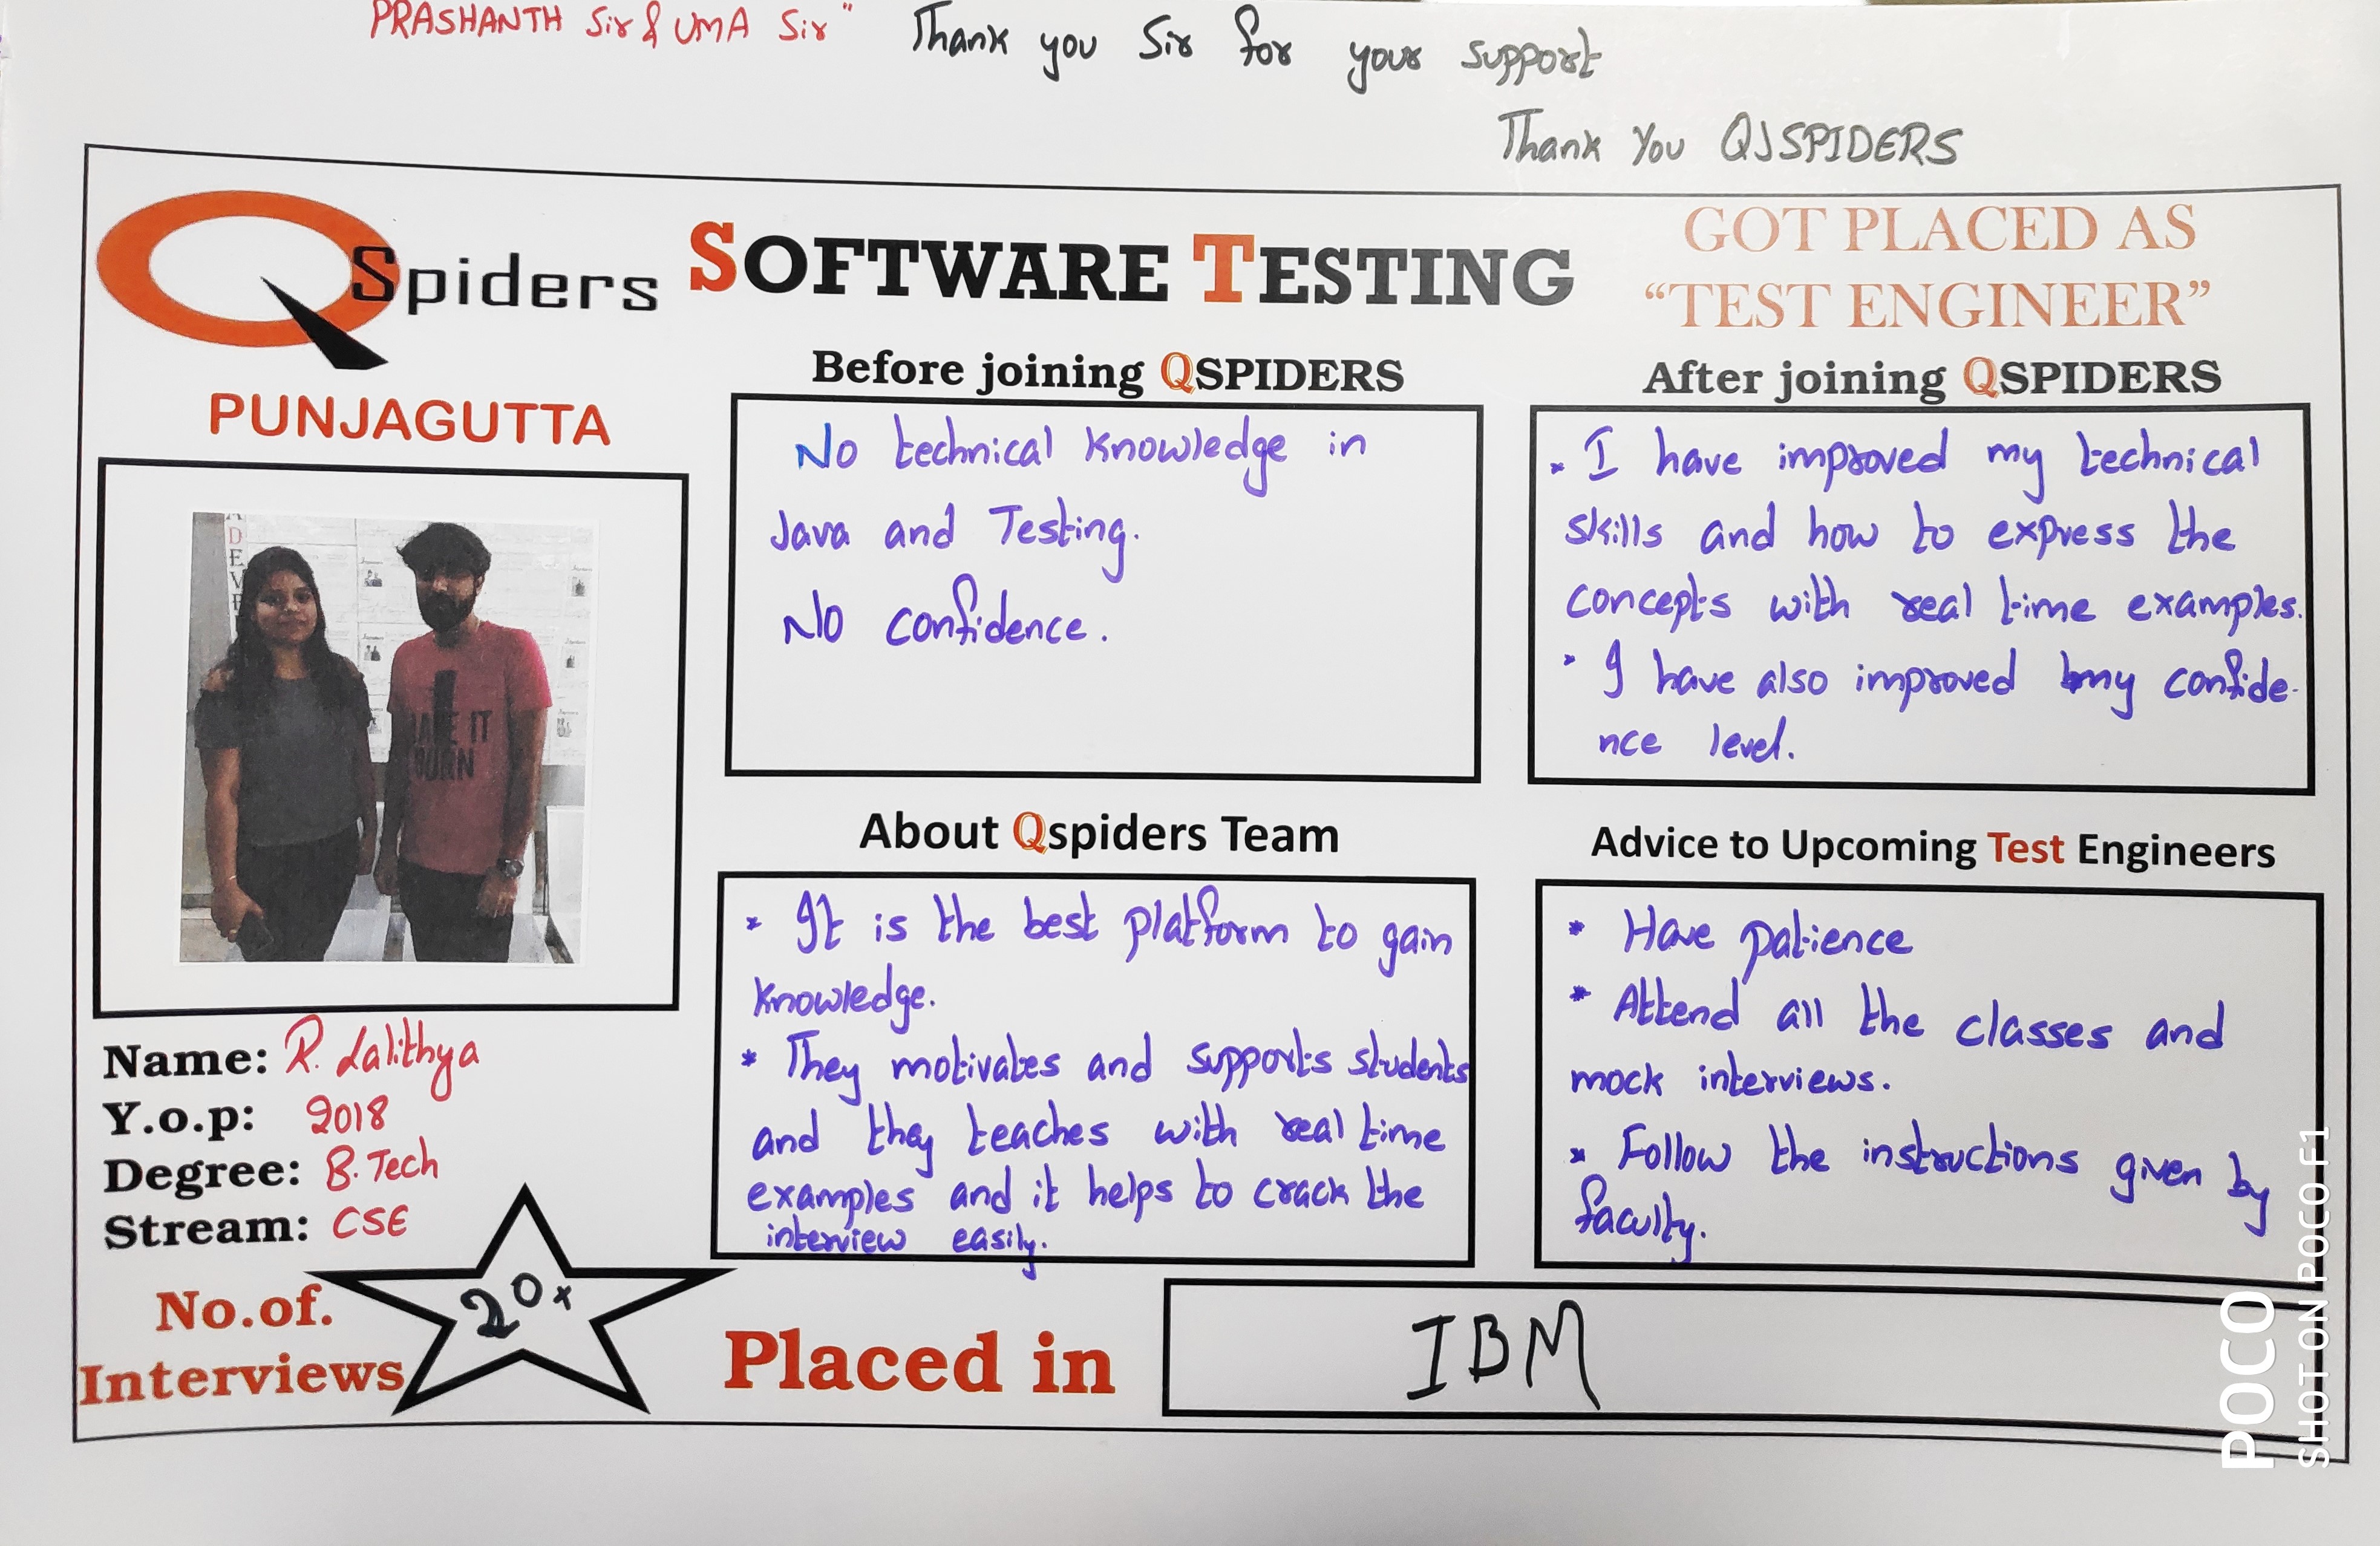 PRASHANTH Sir & UMA Sir" Thank you Sir for your support
Thank You QJSPIDERS
QSpiders
SOFTWARE TESTING
GOT PLACED AS
“TEST ENGINEER”
PUNJAGUTTA
Before joining QSPIDERS
No technical knowledge in
Java and Testing.
No confidence.
After joining QSPIDERS
* I have improved my technical
skills and how to express the
concepts with real time examples.
* I have also improved my confide-
nce level.
D
E
V
IT
BURN
Name: R. Lalithya
Y.o.p: 2018
Degree: B.Tech
Stream: CSE
No.of.
Interviews
20x
About Qspiders Team
* It is the best platform to gain
knowledge.
* They motivates and supports students
and they teaches with real time
examples and it helps to crack the
interview easily.
Advice to Upcoming Test Engineers
* Have patience
* Attend all the classes and
mock interviews.
* Follow the instructions given by
faculty.
Placed in
IBM
POCO
SHOT ON POCO F1